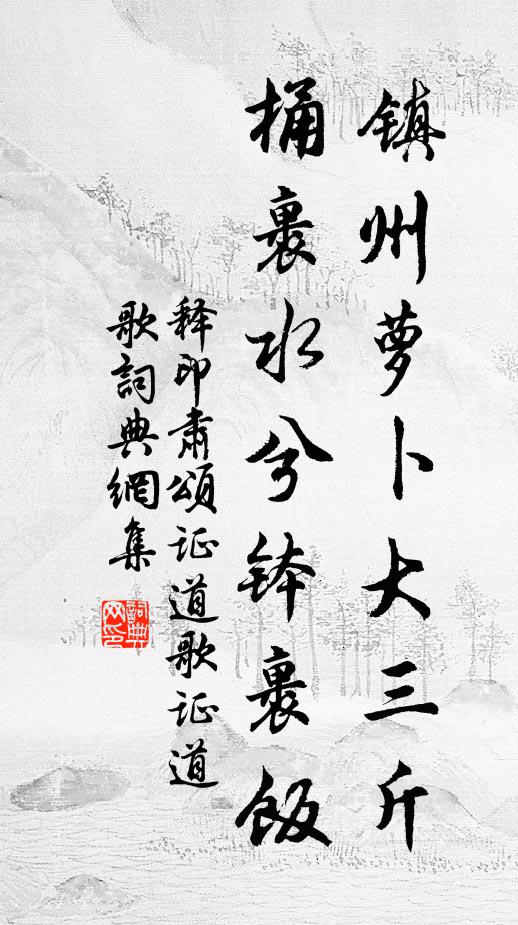 镇州萝卜大三斤
桶裹水兮钵裹饭
释印肃颂证道歌证道
歌詞典網集
詞典
网印